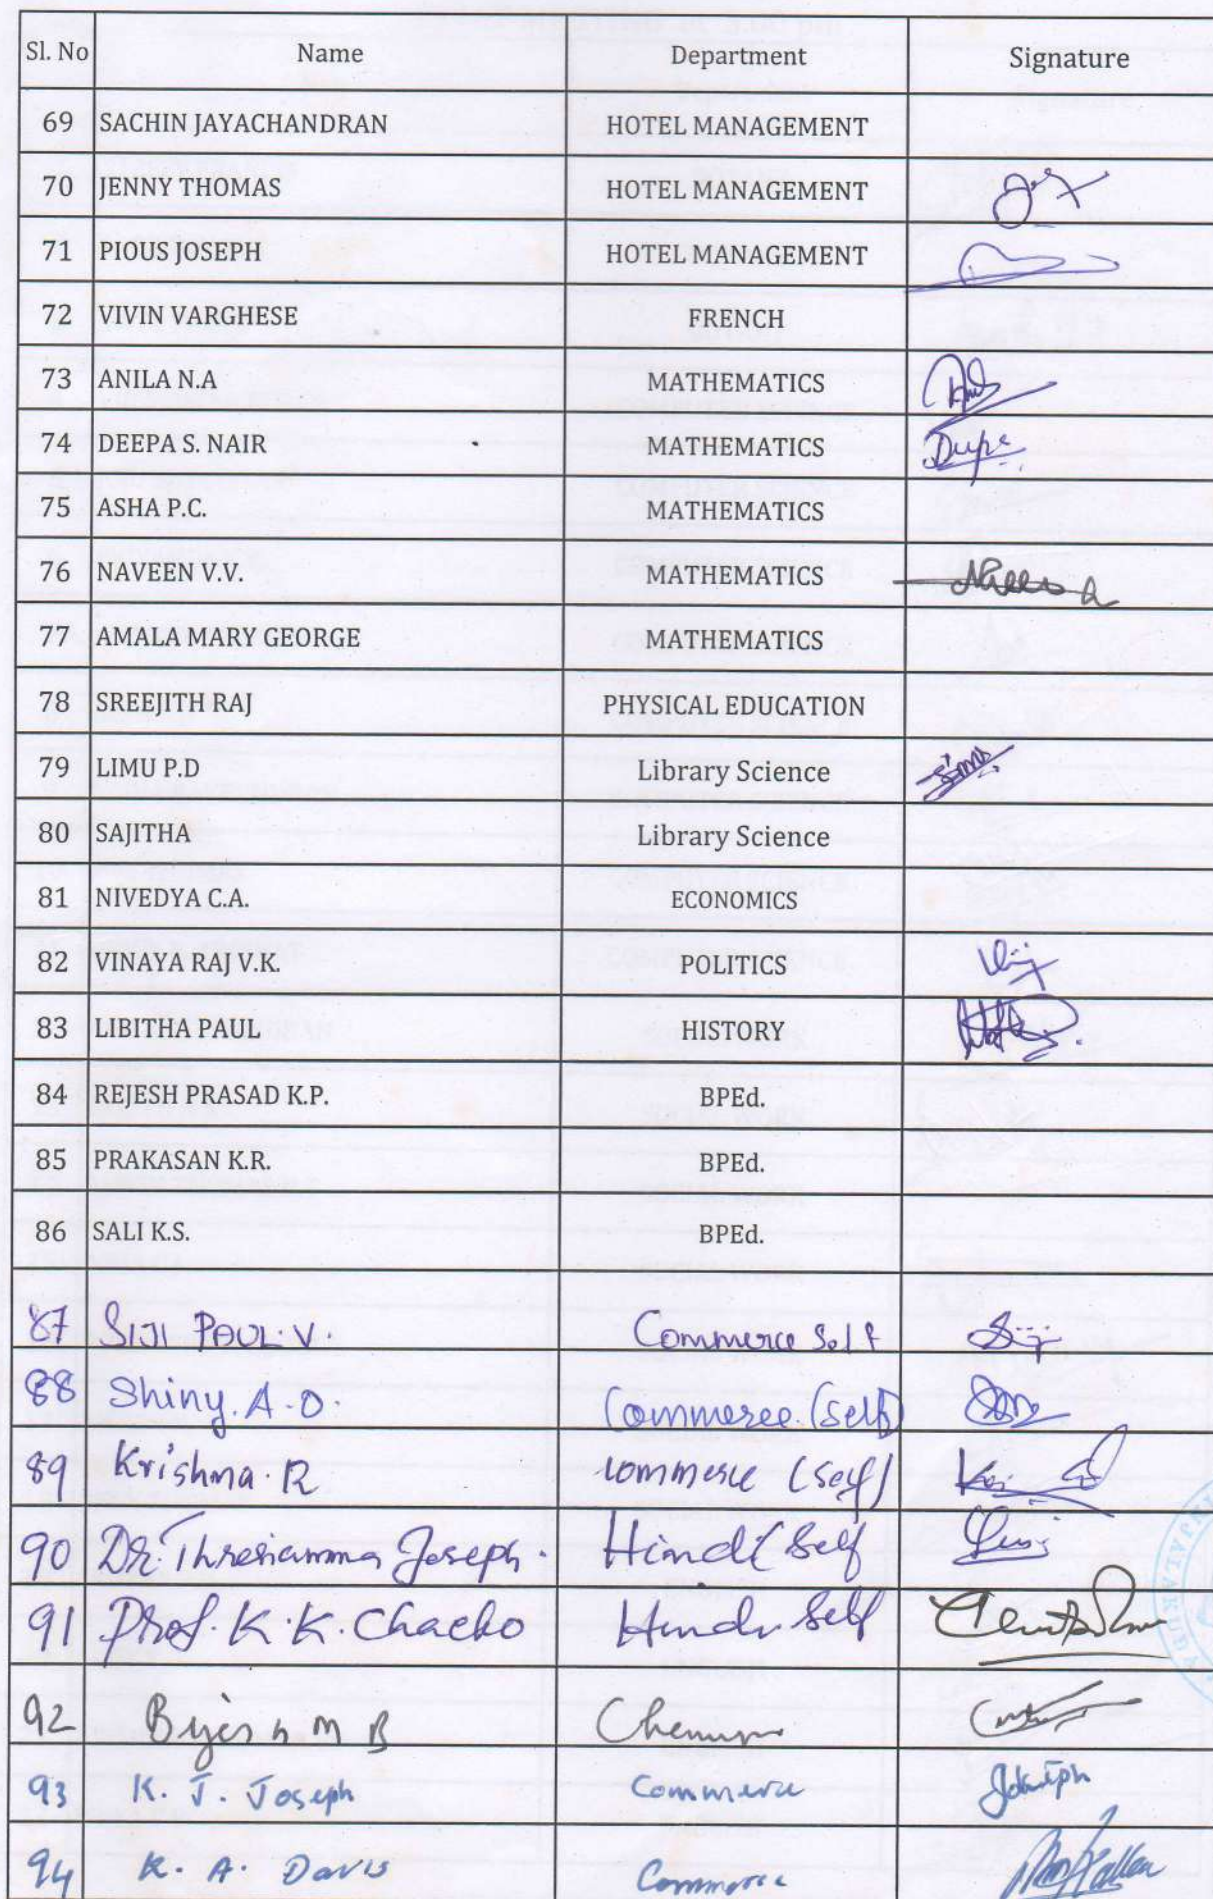 Sl. No Name Department Signature
69 SACHIN JAYACHANDRAN HOTEL MANAGEMENT
70 JENNY THOMAS HOTEL MANAGEMENT
71 PIOUS JOSEPH HOTEL MANAGEMENT
72 VIVIN VARGHESE FRENCH
73 ANILA N.A MATHEMATICS
74 DEEPA S. NAIR MATHEMATICS
75 ASHA P.C. MATHEMATICS
76 NAVEEN V.V. MATHEMATICS
77 AMALA MARY GEORGE MATHEMATICS
78 SREEJITH RAJ PHYSICAL EDUCATION
79 LIMU P.D Library Science
80 SAJITHA Library Science
81 NIVEDYA C.A. ECONOMICS
82 VINAYA RAJ V.K. POLITICS
83 LIBITHA PAUL HISTORY
84 REJESH PRASAD K.P. BPEd.
85 PRAKASAN K.R. BPEd.
86 SALI K.S. BPEd.
87 SIJI PAUL. V. Commerce Self
88 Shiny. A. O. Commerce (Self)
89 Krishna. R Commerce (Self)
90 Dr. Thresiamma Joseph. Hindi (Self
91 Prof. K. K. Chacko Hindi Self
92 Bijesh M B
93 K. J. Joseph Commerce Joseph
94 K. A. Davis Commerce